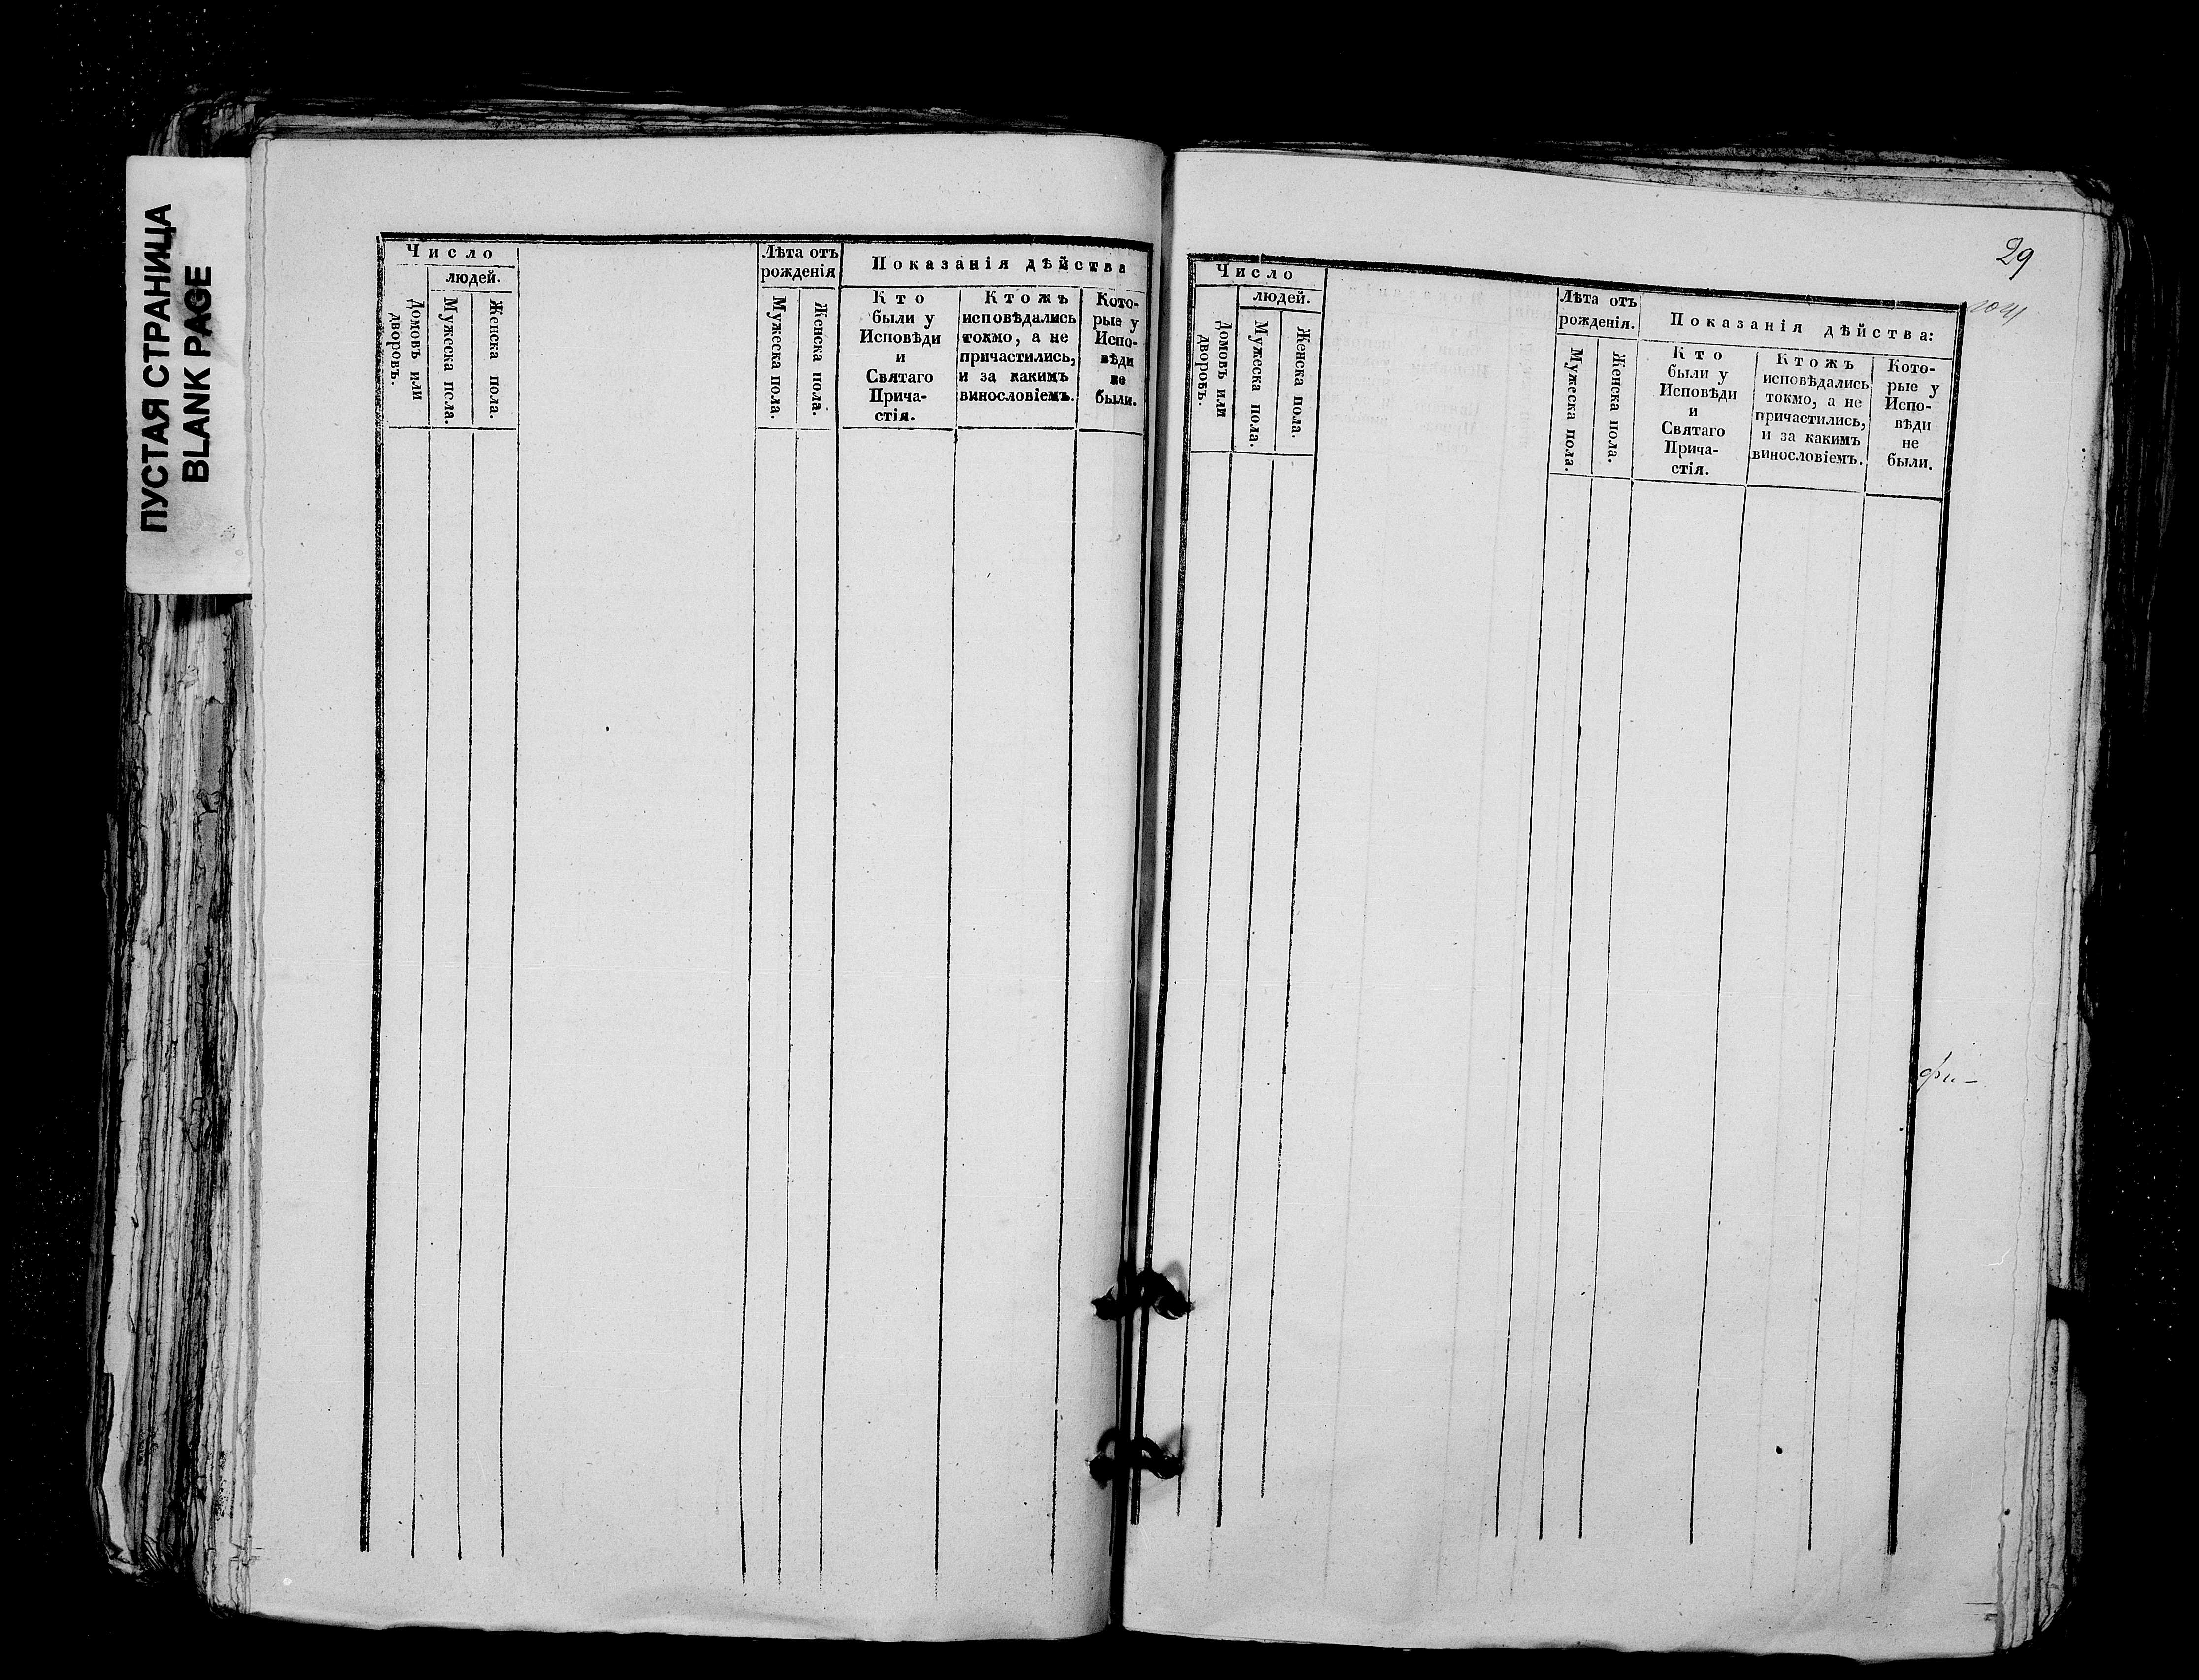 ПУСТАЯ СТРАНИЦА
BLANK PAGE
Число
людей.
Домовъ или
дворовъ.
Мужеска пола.
Женска пола.
Лѣта отъ
рожденія
Мужеска пола.
Женска пола.
Показанія дѣйства
Кто
были у
Исповѣди
и
Святаго
Прича-
стія.
Ктожъ
исповѣдались
токмо, а не
причастились,
и за какимъ
винословіемъ.
Кото-
рые у
Испо-
вѣди
не
были.
29
Число
людей.
Домовъ или
дворовъ.
Мужеска пола.
Женска пола.
Лѣта отъ
рожденія.
Мужеска пола.
Женска пола.
Показанія дѣйства:
Кто
были у
Исповѣди
и
Святаго
Прича-
стія.
Ктожъ
исповѣдались
токмо, а не
причастились,
и за какимъ
винословіемъ.
Кото-
рые у
Испо-
вѣди
не
были.